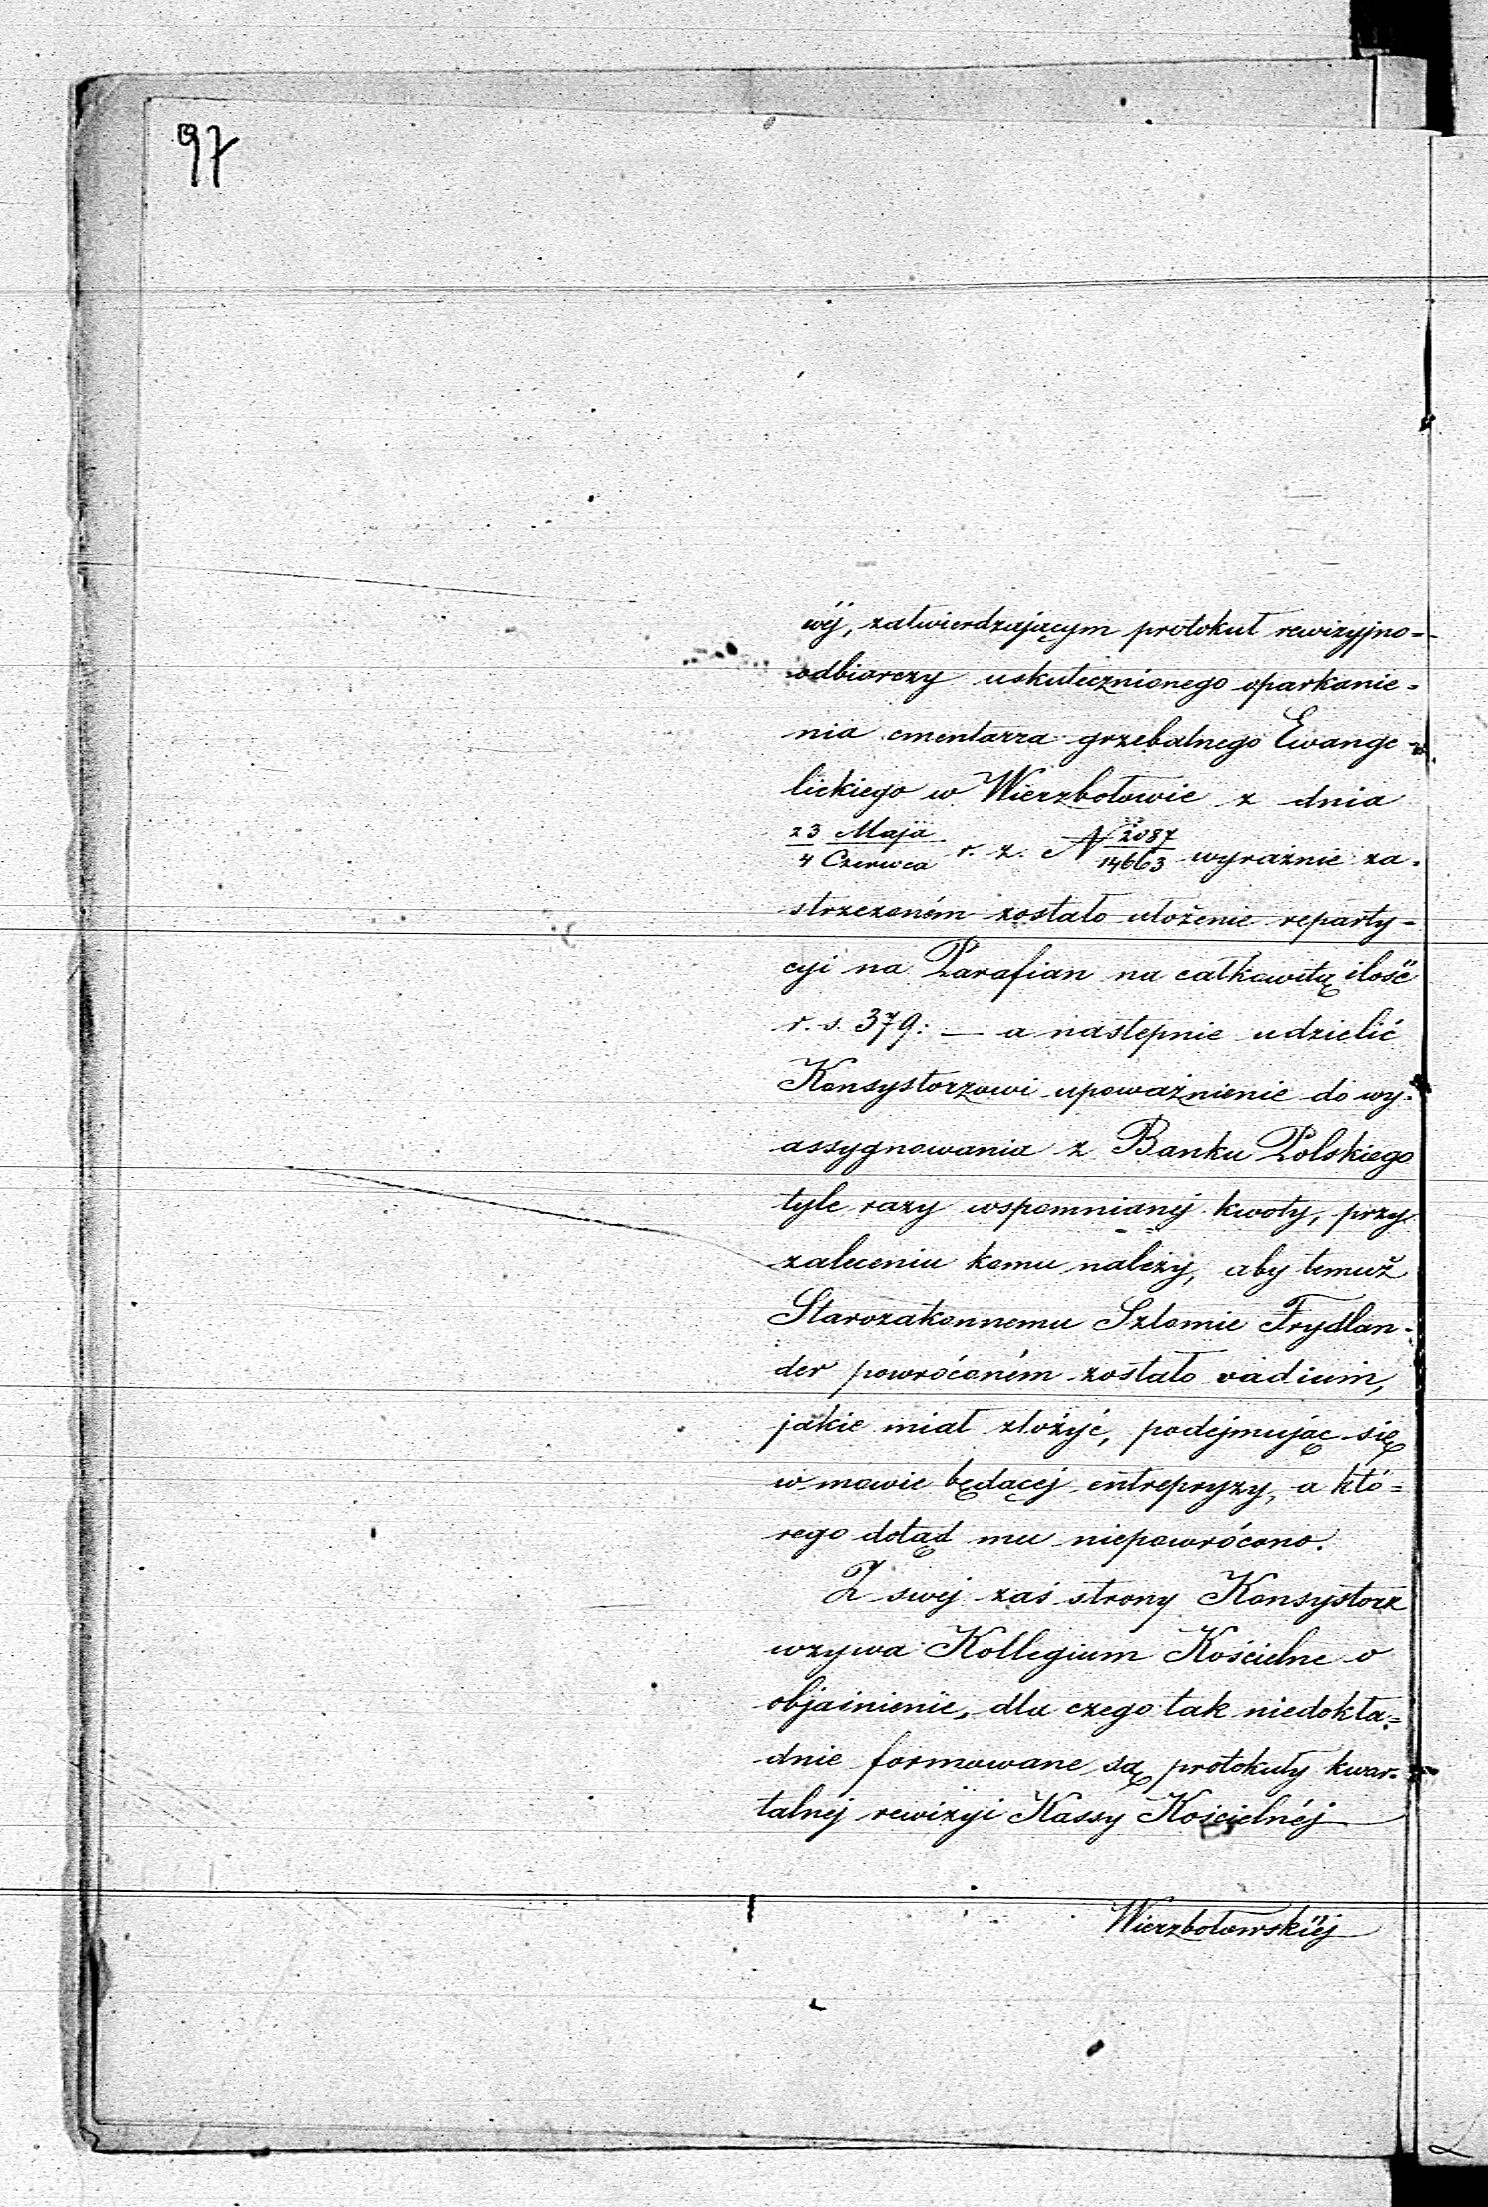 97
wéj, zatwierdzającym protokuł rewizyjno=
odbiorczy uskutecznionego oparkanie=
nia cmentarza grzebalnego Ewange
lickiego w Wierzbołowie z dnia
23 Maja / 4 Czerwca r. z. N 2087/14663 wyraźnie za=
strzeżoném zostało ułożenie reparty=
cyi na Parafian na całkowitą ilość
r. s. 379: — a następnie udzielić
Konsystorzowi upoważnienie do wy=
assygnowania z Banku Polskiego
tyle razy wspomnianéj kwoty, przy
zaleceniu komu należy, aby temuż
Starozakonnemu Szlomie Frydlan=
der powróconém zostało vadium,
jakie miał złożyć, podejmując się
w mowie będącej entrepryzy, a któ=
rego dotąd mu niepowrócono.
Z swej zaś strony Konsystorz
wzywa Kollegium Kościelne o
objaśnienie, dla czego tak niedokła=
dnie formowane są protokuły kwar=
talnej rewizyi Kassy Kościelnéj
Wierzbołowskiéj